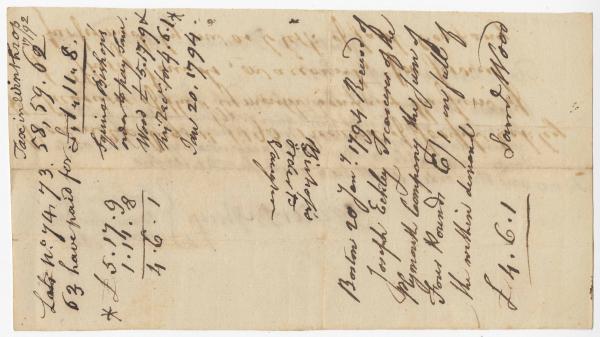 Tax in Winthrop
1792
Lots No 74, 73. 58, 59, 62
63 have paid for £1.14.8.
* £5.17.9
1.14.8
4.6.1
Squire Bishops
order to pay Saml
Wood £5.17.9 &
my Rect for 4.6.1 *
Jany 20. 1794.
Bishop's
order to
Boston 20 Jany. 1794 Recd. of
Joseph Eckley Treasurer of the
Plymouth Company the sum of
Four Pounds 6/1 in full of
the within demand
£4.6.1 Saml Wood